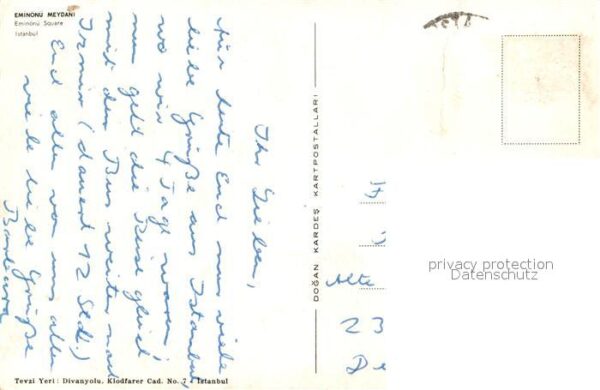 EMİNÖNÜ MEYDANI
Eminönü Square
İstanbul
Ihr Lieben,
Für heute Euch nur viele
liebe Grüße aus Istanbul
wo wir 4 Tage waren,
nun geht die Reise gleich
mit dem Bus weiter nach
Izmir (dauert 12 Std.)
Euch allen von uns allen
viele liebe Grüße
Barbara
DOĞAN KARDEŞ KARTPOSTALLARI
Alte
23
De
privacy protection
Datenschutz
Tevzi Yeri: Divanyolu. Klodfarer Cad. No. 7 - İstanbul